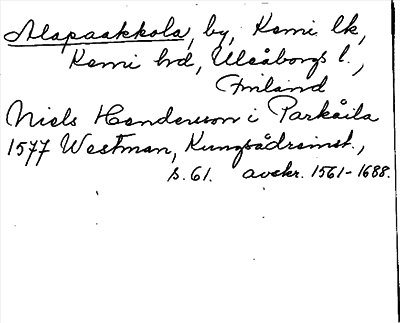 Alapaakkola, by, Kemi lk,
Kemi hd, Uleåborgs l.,
Finland
Niels Henderson i Parkåila
1577 Westman, Kungsådreinst.,
s. 61. avskr. 1561-1688.